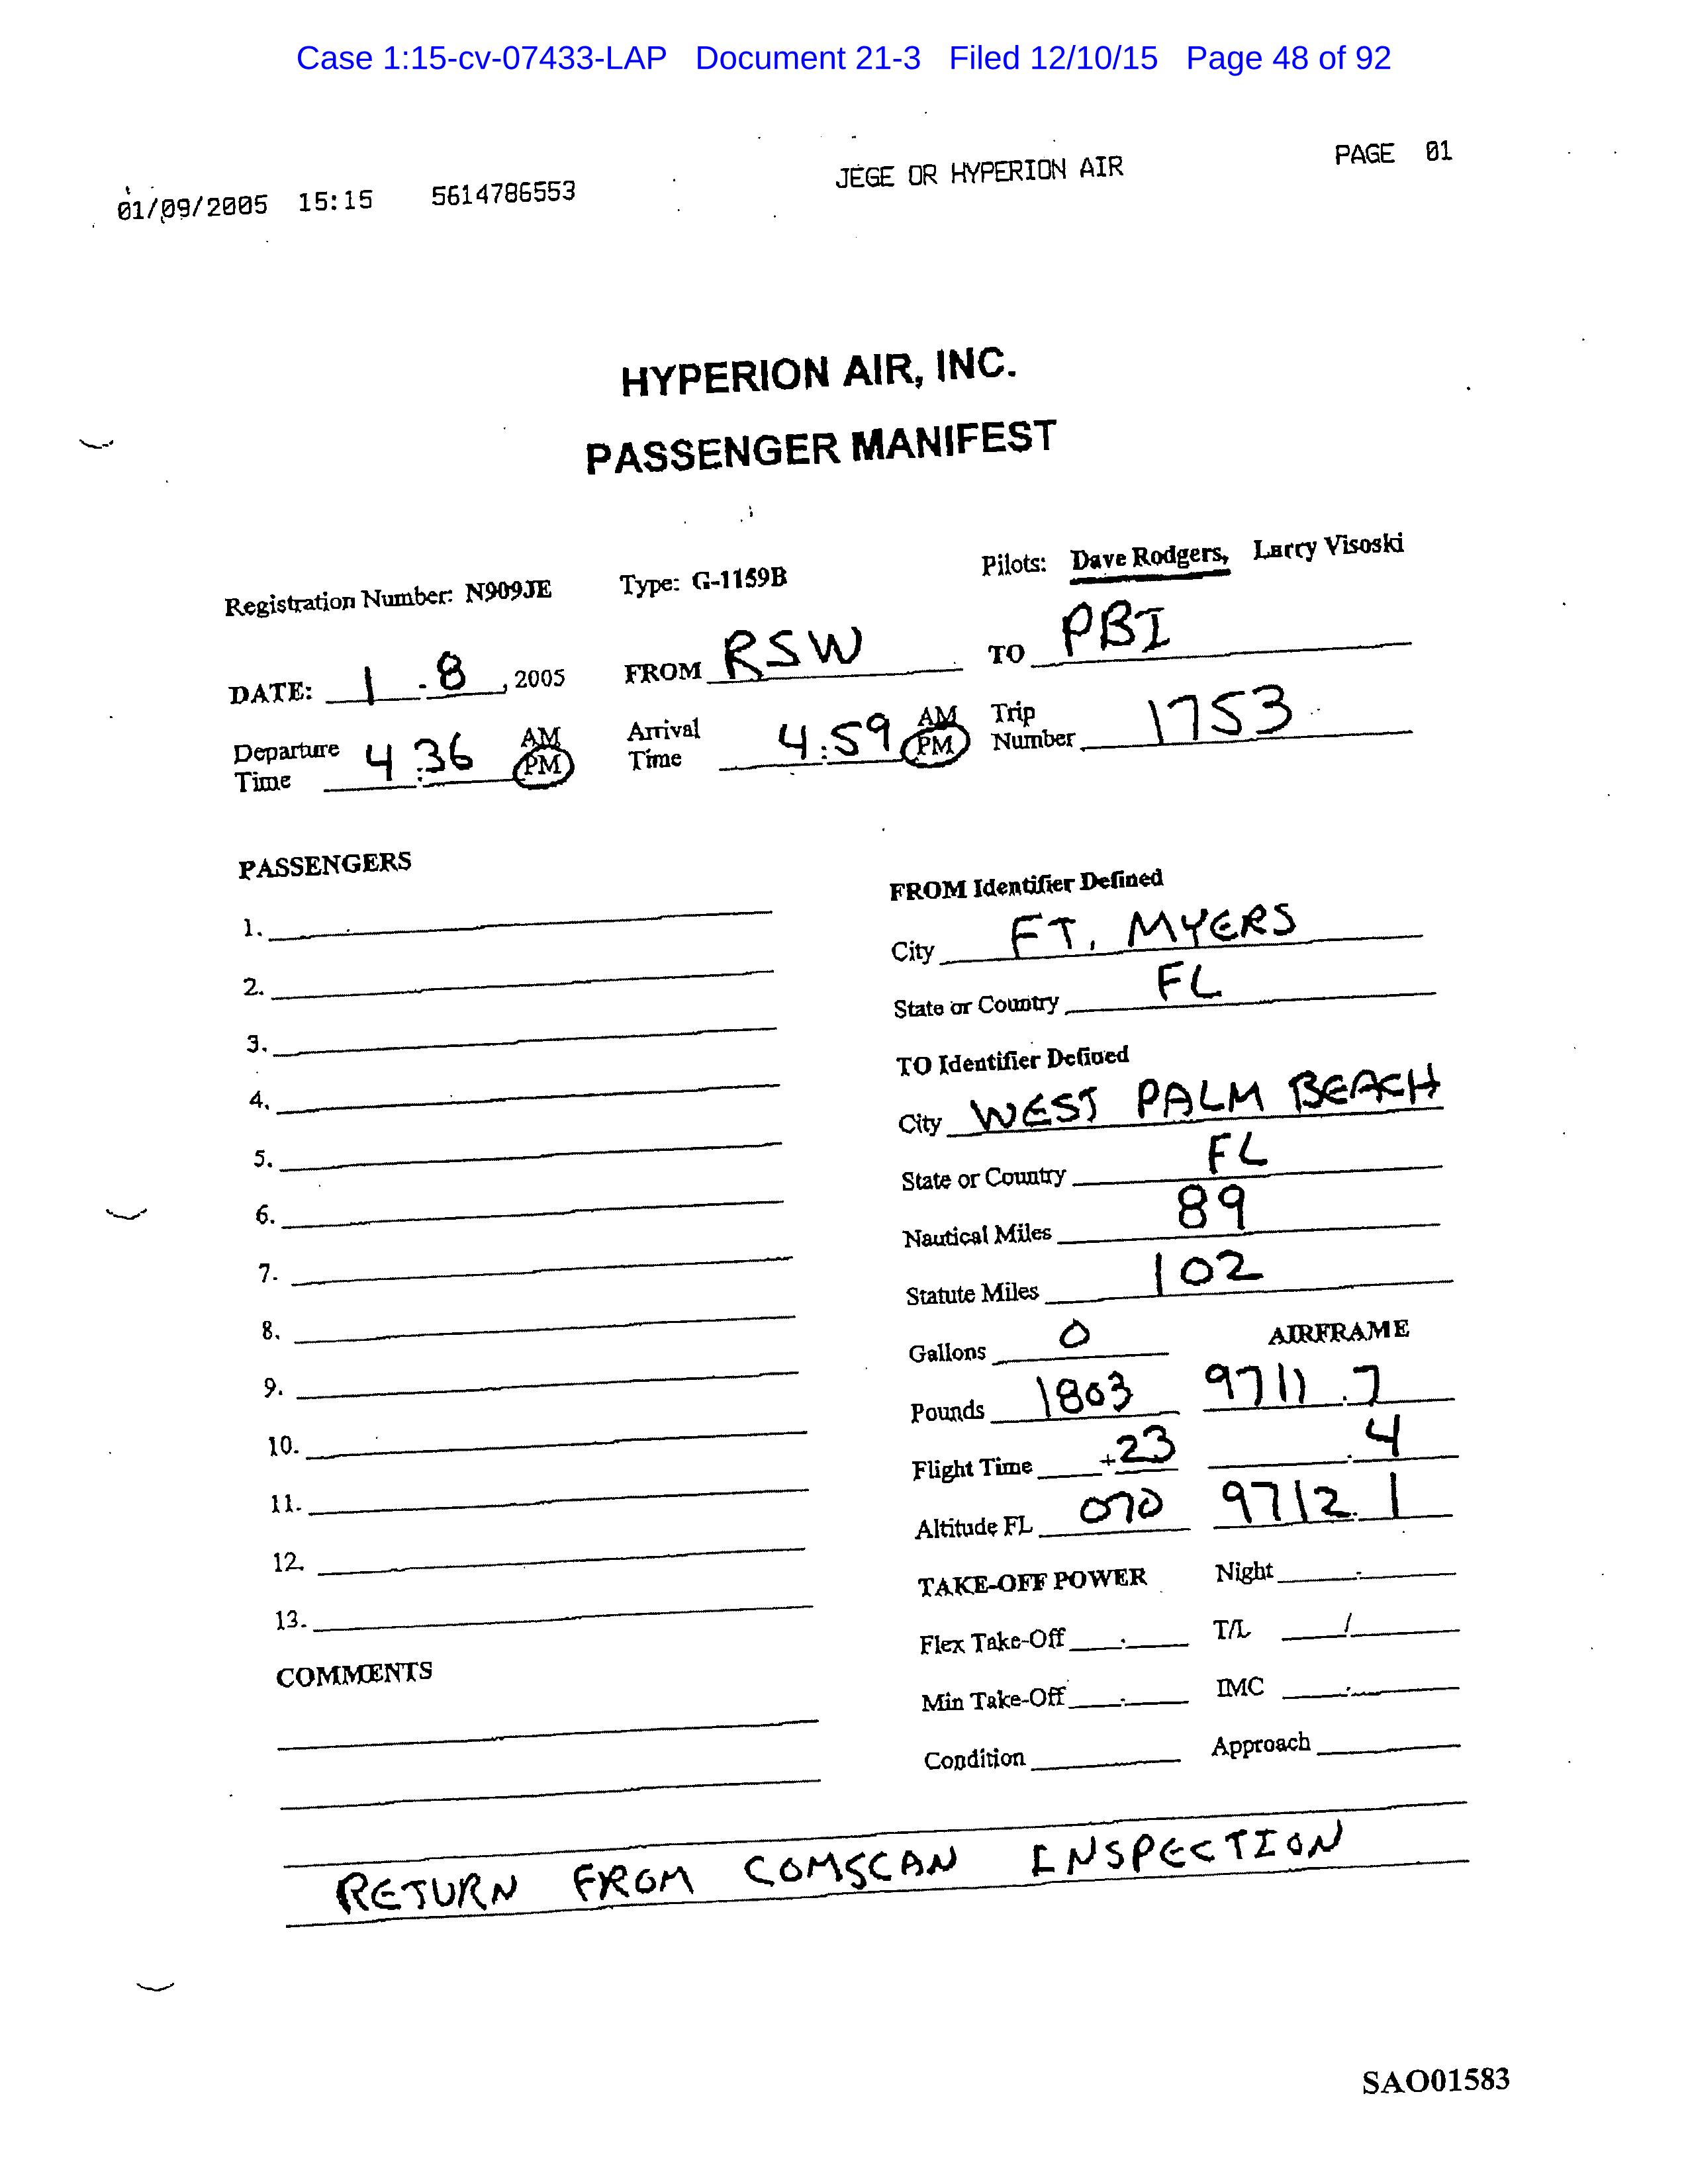 Case 1:15-cv-07433-LAP Document 21-3 Filed 12/10/15 Page 48 of 92
01/09/2005 15:15 5614786553 JEGE OR HYPERION AIR PAGE 01
HYPERION AIR, INC.
PASSENGER MANIFEST
Registration Number: N909JE Type: G-1159B Pilots: Dave Rodgers, Larry Visoski
DATE: 1 - 8, 2005 FROM RSW TO PBI
Departure Time 4:36 AM PM Arrival Time 4:59 AM PM Trip Number 1753
PASSENGERS
1.
2.
3.
4.
5.
6.
7.
8.
9.
10.
11.
12.
13.
COMMENTS
FROM Identifier Defined
City FT. MYERS
State or Country FL
TO Identifier Defined
City WEST PALM BEACH
State or Country FL
Nautical Miles 89
Statute Miles 102
Gallons 0 AIRFRAME
Pounds 1803 9711.7
Flight Time +23 .4
Altitude FL 070 9712.1
TAKE-OFF POWER Night
Flex Take-Off T/L /
Min Take-Off IMC
Condition Approach
RETURN FROM COMSCAN INSPECTION
SAO01583